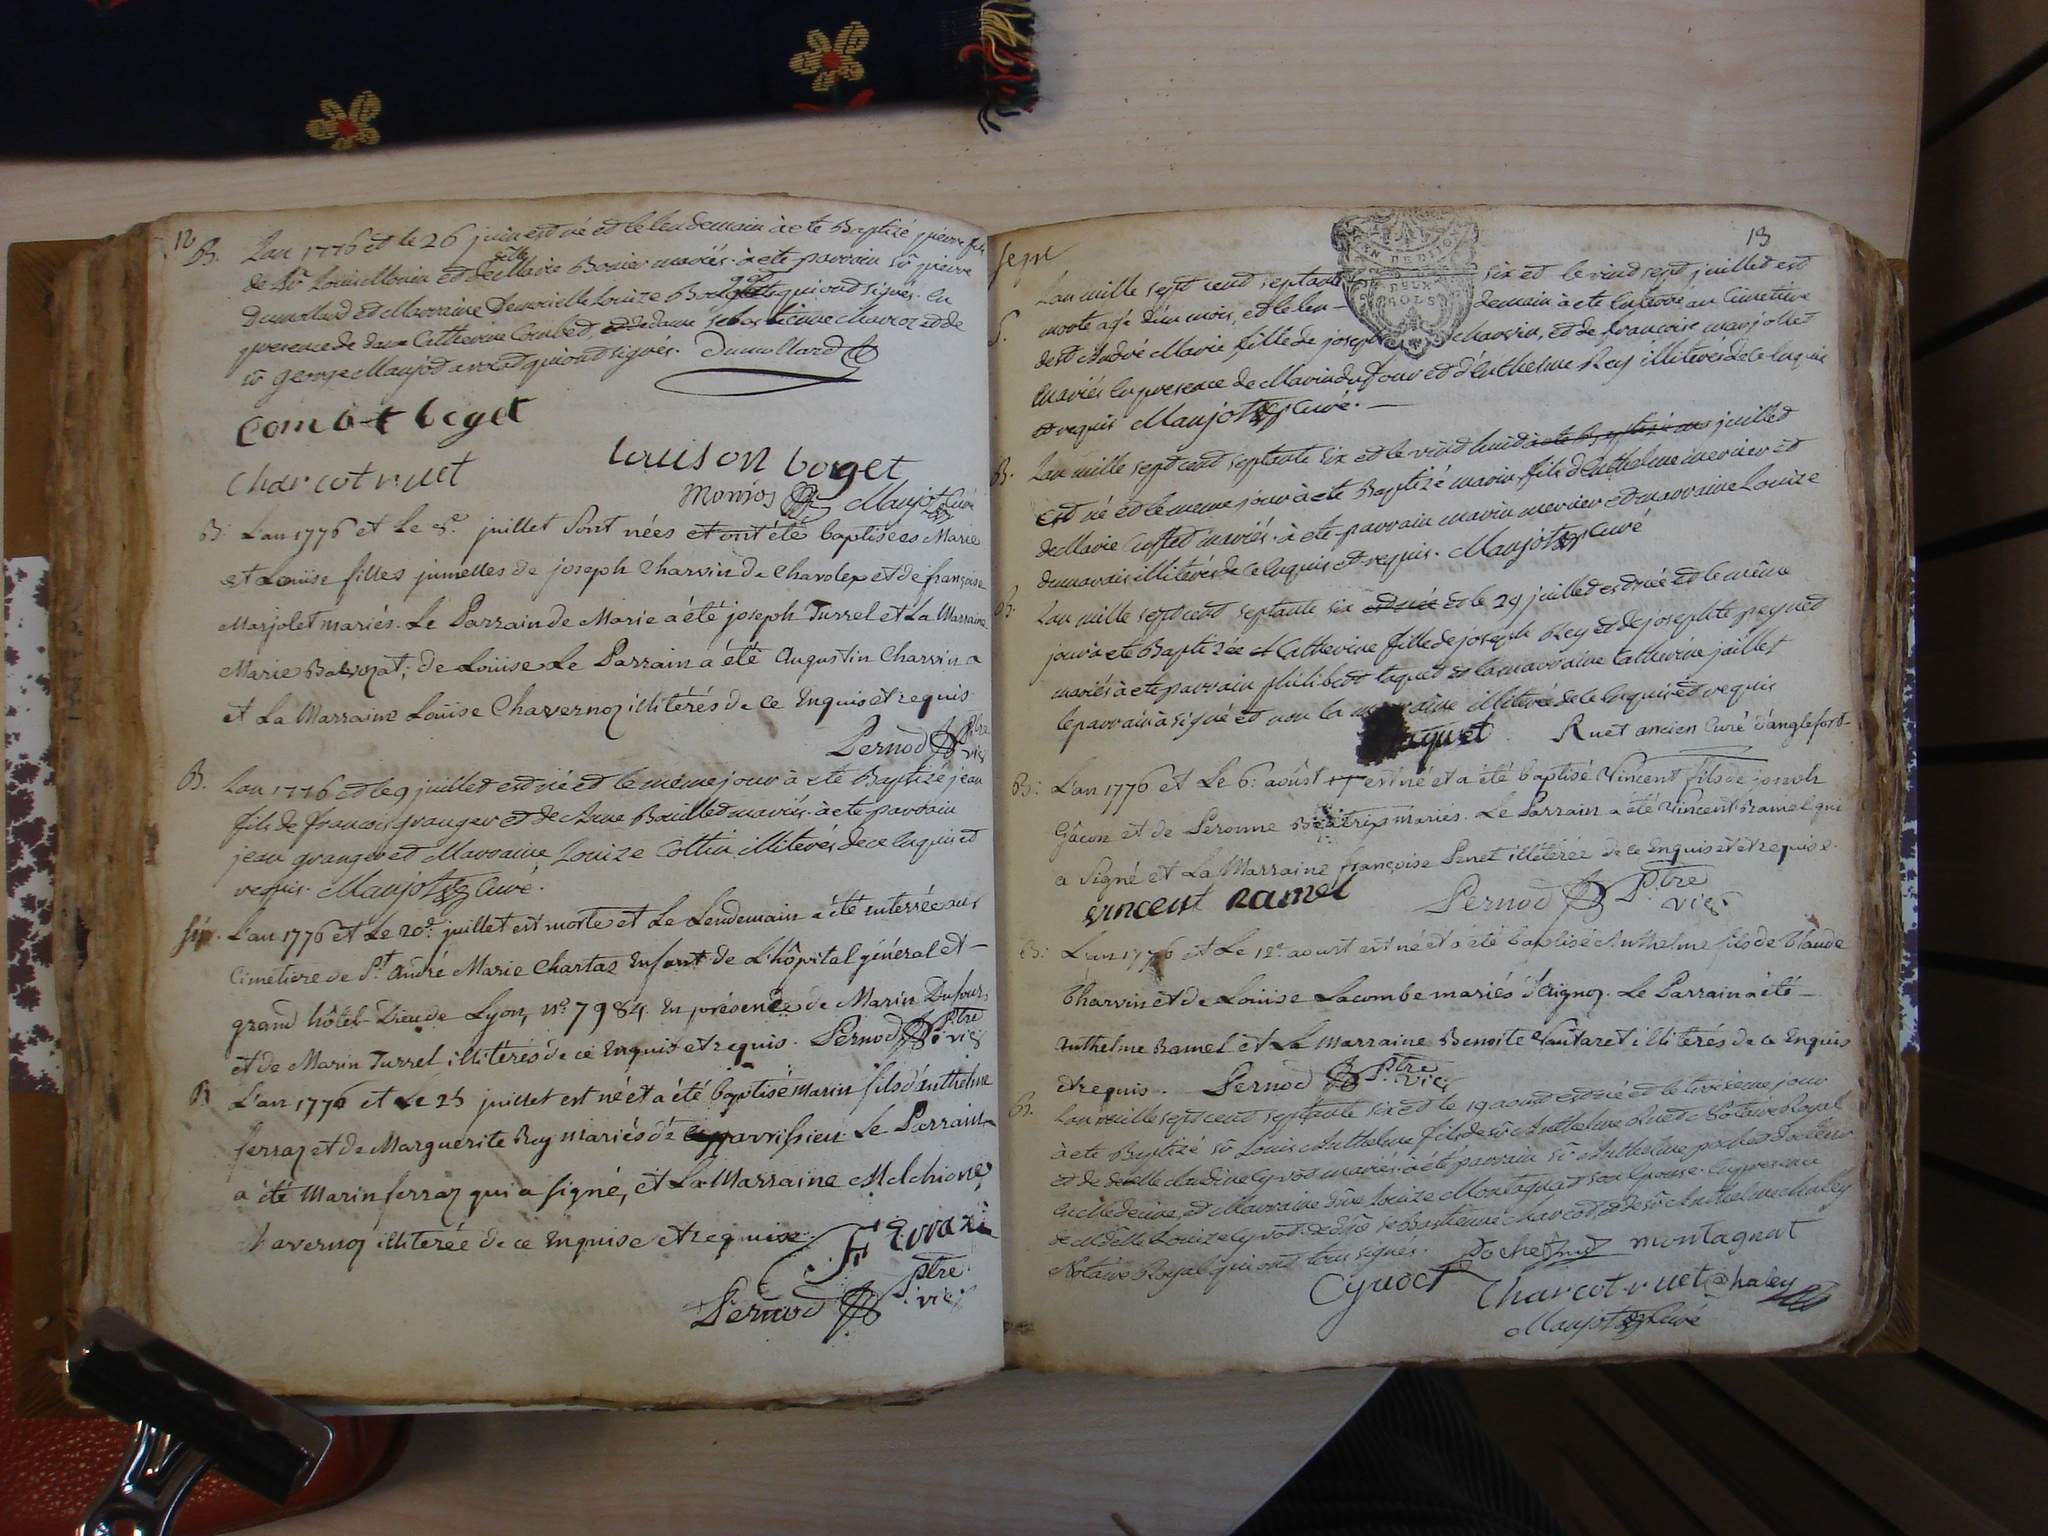 12
B. Lan 1776 et le 26 juin est né et le lendemain à ete Baptizé pierre fils
de sr Louis Monin et de Marie Bonier mariés. à ete parrain sr pierre
Dumollard et Marraine Demoiselle Louize Boget qui ont signés. En
presence de dame Catherine Combet, et de dame sebastienne Charcot et de
sr George Maujot avocat qui ont signés. Dumollard
Combet boget
Charcot ruet
louison boget
Monios Maujot Curé
B: L'an 1776 et Le 8e juillet sont nées et ont été baptisées Marie
et Louise filles jumelles de joseph Charvin de Charolex et de françoise
Marjolet mariés. Le Parrain de Marie a été joseph Turrel et La Marraine
Marie ; de Loüise Le Parrain a été Augustin Charvin a
et La Marraine Loüise Chavernoz illitérés de ce Enquis et requis
Pernod Ptre vic
B. Lan 1776 et le 9 juillet est né et le même jour à ete Baptizé jean
fils de francois granger et de Anne Bouillet mariés. à ete parrain
jean granger et Marraine Louize Cottin illiterés de ce Enquis et
requis. Maujot Curé.
Sép. L'an 1776 et Le 20e juillet est morte et Le Lendemain a été enterrée au
Cimetiere de St André Marie Chartas Enfant de L'hôpital général et
grand hôtel Dieu de Lyon, no 7984. En présence de Marin Dufour,
et de Marin Turrel illitérés de ce Enquis et requis. Pernod Ptre vic
B L'an 1776 et Le 25 juillet est né et a été baptisé Marin fils d'anthelme
ferraz et de Marguerite Rey mariés Le Parrain
a été Marin ferraz qui a signé, et La Marraine Melchione
Chavernoz illiterée de ce Enquise et requise. Ferraz
Pernod Ptre vic
13
Sept
Lan mille sept cent septante six et le vint sept juillet est
S. morte agé d'un mois, et le lendemain à ete Enterré au Cimetiere
de st André Marie fille de joseph Charvin, et de francoise marjollet
mariés En presence de Marin du four et d'Enthelme Rey illiterés de ce Enquis
et requis Maujot Curé.
B. Lan mille sept cent septante six et le vint huit à ete Baptizé au juillet
est né et le meme jour à ete Baptizé marin fils d'Enthelme mernier et
de Marie Cusset mariés. à ete parrain marin mernier et marraine Louize
dumarais illiterés de ce Enquis et requis. Maujot Curé
B. Lan mille sept cent septante six est née et le 29 juillet est née et le même
jour à ete Baptizée Catherine fille de joseph Rey et de josephte peynet
mariés à ete parrain philibert taquet et la marraine Catherine jaillet
le parrain à signé et non la marraine illiterée de ce Enquis et requis
taquet Ruet ancien Curé d'anglefort
B: L'an 1776 et Le 6: aoüst est né et a été baptisé Vincent fils de joseph
Gâcon et de Peronne Beatrix mariés. Le Parrain a été Vincent Ramel qui
a signé et La Marraine françoise Penet illitérée de ce Enquise et requise.
vincent Ramel Pernod Ptre vic
B: L'an 1776 et Le 12e aoust est né et a été baptisé Anthelme fils de Claude
Charvin et de Loüise Lacombe mariés d'Aignoz. Le Parrain a été
Anthelme Ramel et La Marraine Benoite Vautaret illitérés de ce Enquis
et requis. Pernod Ptre vic
B. Lan mille sept cent septante six et le 19 aout est né et le troisieme jour
à ete Baptizé sr Louis Anthelme fils de sr Anthelme Ruet Notaire Royal
et de mariés à été parrain sr Anthelme pochet docteur
En Medecine, et Marraine Louize Montagnat son Epouse. En presence
de sebastienne Charcot, et de sr Anthelme Chaley
Notaire Royal qui ont tous signés. Pochet montagnat
Cyvoct Charcot ruet Chaley
Maujot Curé